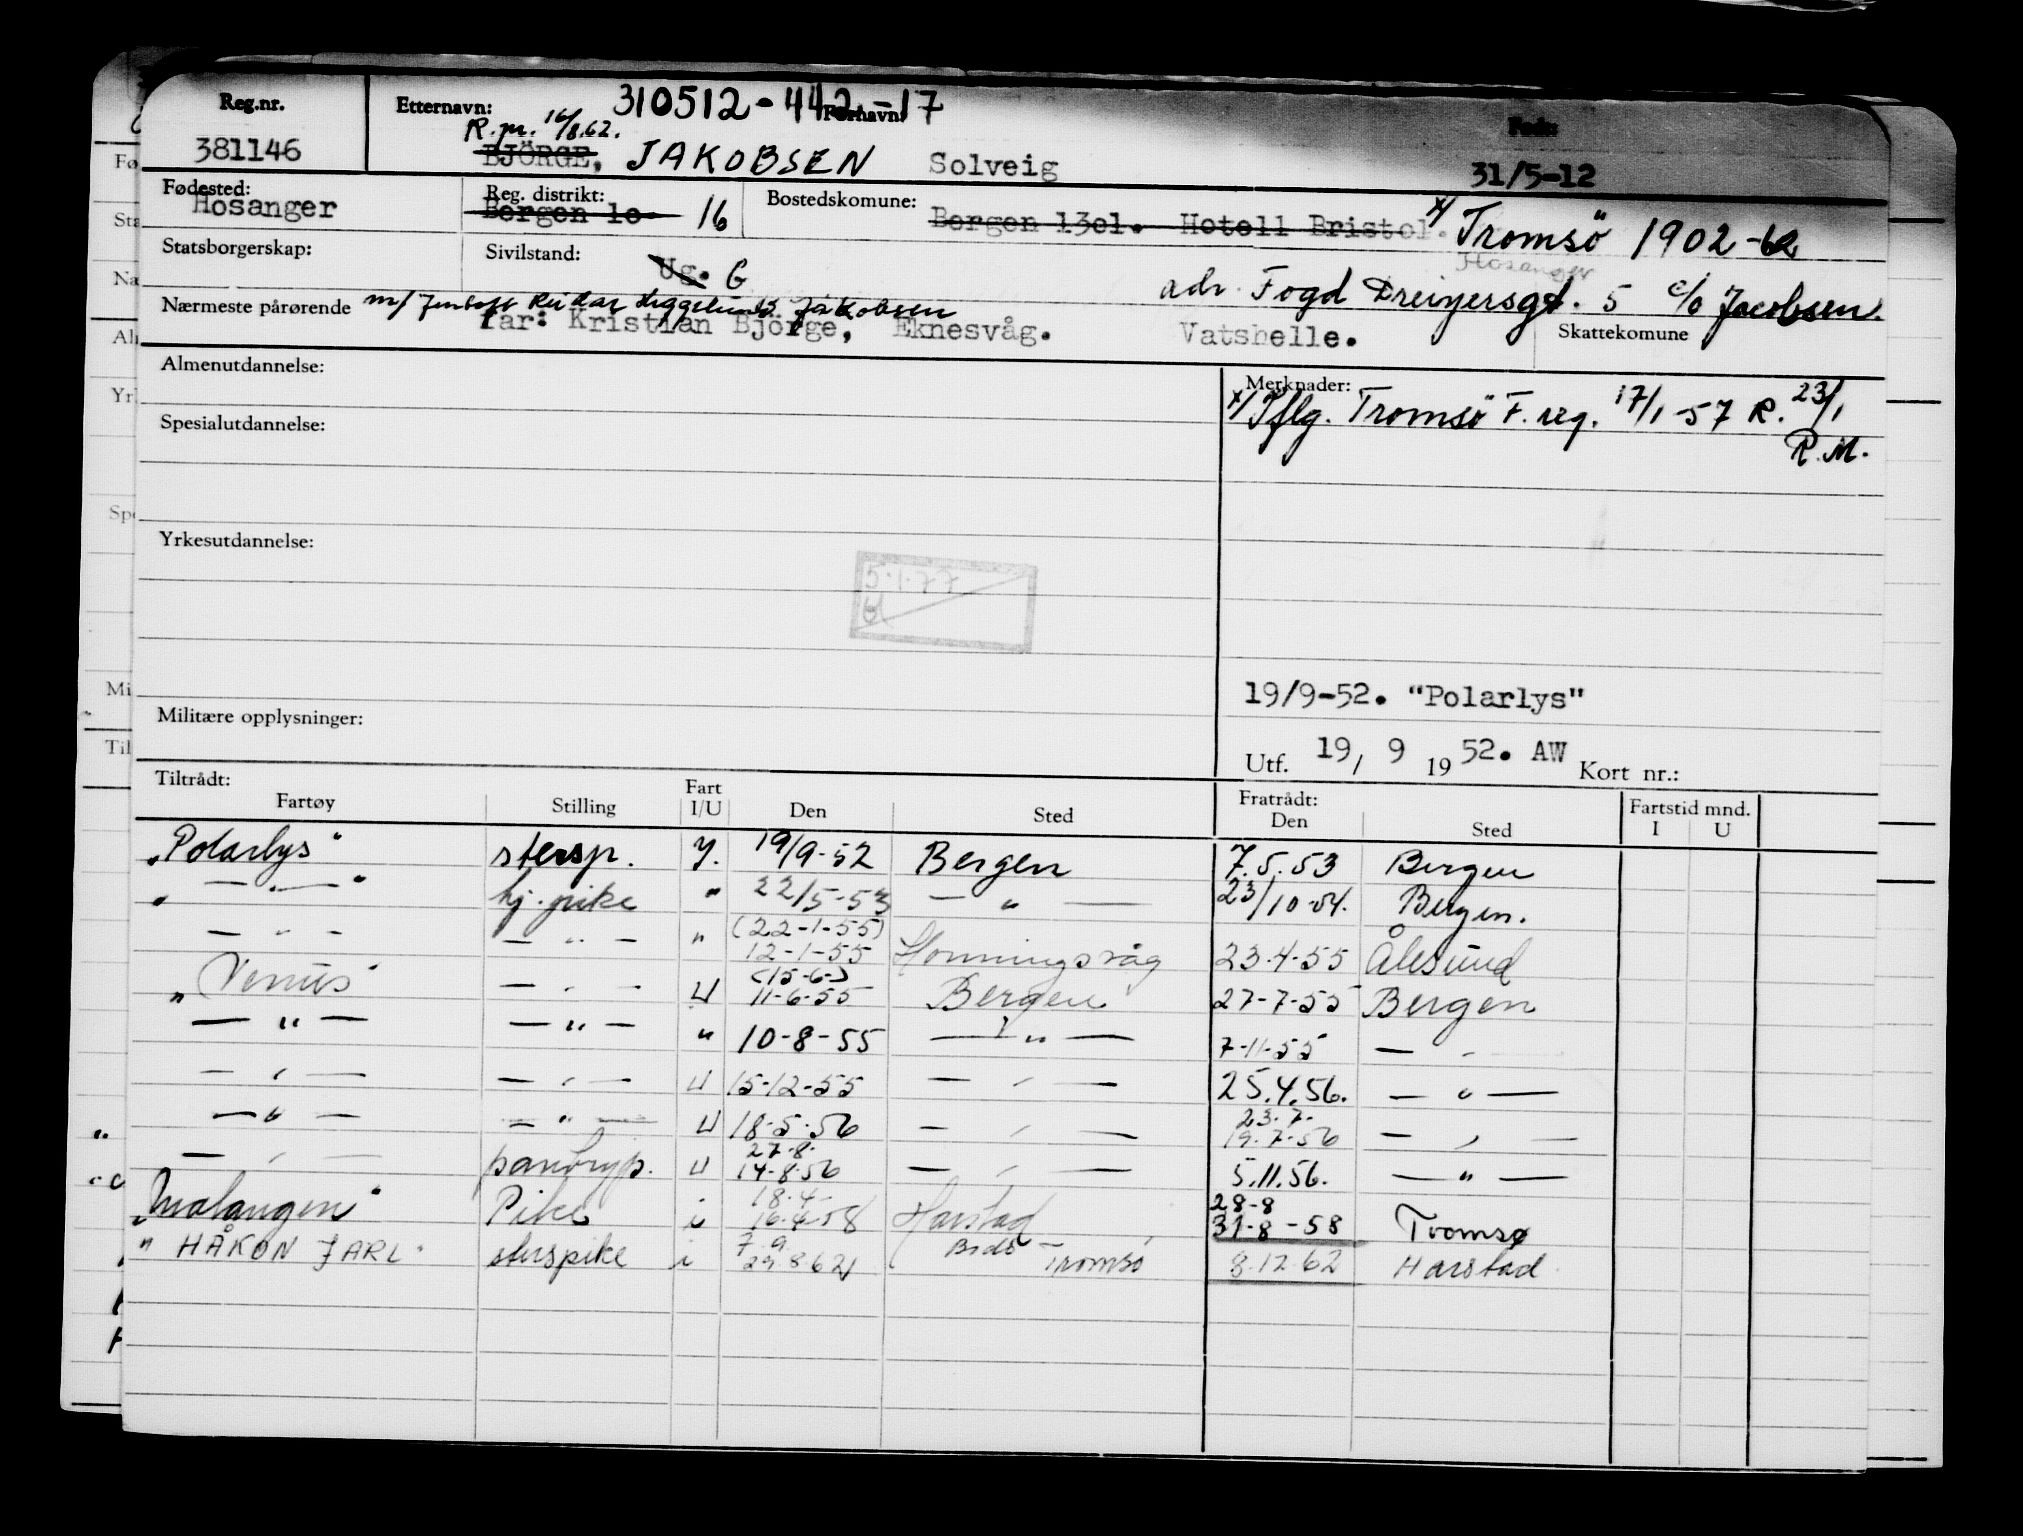 Reg.nr. Etternavn: 310512-442-17 Fornavn: Født:
R. m. 16/8.62.
381146 BJÖRGE, JAKOBSEN Solveig 31/5-12
Fødested: Reg. distrikt: Bostedskomune:
Hosanger Bergen 1e 16 Bergen 13el. Hotell Bristol. x/ Tromsø 1902-62
Statsborgerskap: Sivilstand: Ug. G Hosanger
adr. Fogd Dreiyersgt. 5 c/o Jacobsen.
Nærmeste pårørende m/ Reidar Jakobsen
far: Kristian Björge, Eknesvåg. Vatshelle. Skattekomune
Almenutdannelse: Merknader:
x/ Pflg. Tromsø F. reg. 17/1-57 R. 23/1
R.M.
Spesialutdannelse:
Yrkesutdannelse:
5.1.77
19/9-52. "Polarlys"
Militære opplysninger:
Utf. 19/ 9 1952. AW Kort nr.:
Tiltrådt: Fratrådt:
Fartøy Stilling Fart I/U Den Sted Den Sted Fartstid mnd. I U
"Polarlys" stersp. I. 19/9-52 Bergen 7.5.53 Bergen
" — " — " hj. pike " 22/5-53 — " — 23/10-54. Bergen.
— " — — " — " (22-1-55) 12-1-55 Honningsvåg 23.4-55 Ålesund
"Venus" — " — U (15-6-) 11-6-55 Bergen 27-7-55 Bergen
— " — — " — " 10-8-55 — " — 7-11-55 — " —
— " — — " — U 15-12-55 — " — 25.4.56. — " —
— " — — " — U 18-5-56 — " — 23.7. 19.7-56 — " —
— " — pantryp. U 27.8. 14-8-56 — " — 5.11.56. — " —
"Malangen" Pike i 18.4- 16.4-58 Harstad 28-8 31-8-58 Tromsø
"HÅKON JARL" sterspike i 7.9 29.8.62 Bodø Tromsø 8.12.62 Harstad